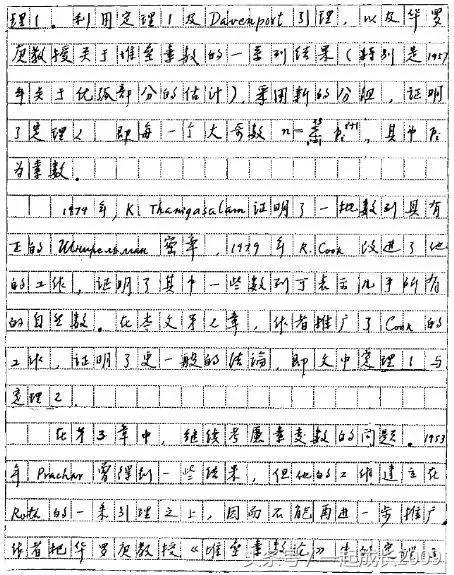 理1. 利用定理1及Davenport引理, 以及华罗
庚教授关于堆垒素数的一系列结果(特别是1957
年关于优弧部分的估计), 采用新的分组, 证明
了定理2, 即每一个大奇数 n=
为素数.
1979年, K. Thanigasalam证明了一批数列具有
正的 Шнирельман 密率, 1979年 R. Cook 改进了他
的工作, 证明了其中一些数列可表示几乎所有
的自然数. 在本文第2章, 作者推广了Cook的
工作, 证明了更一般的结论, 即文中定理1与
定理2.
在第3章中, 继续考虑素变数的问题. 1953
年 Prachar 曾得到一些结果, 但他的工作建立在
Roth 的一系引理之上, 因而不能再进一步推广.
作者把华罗庚教授《堆垒素数论》
头条号/一起成长2009